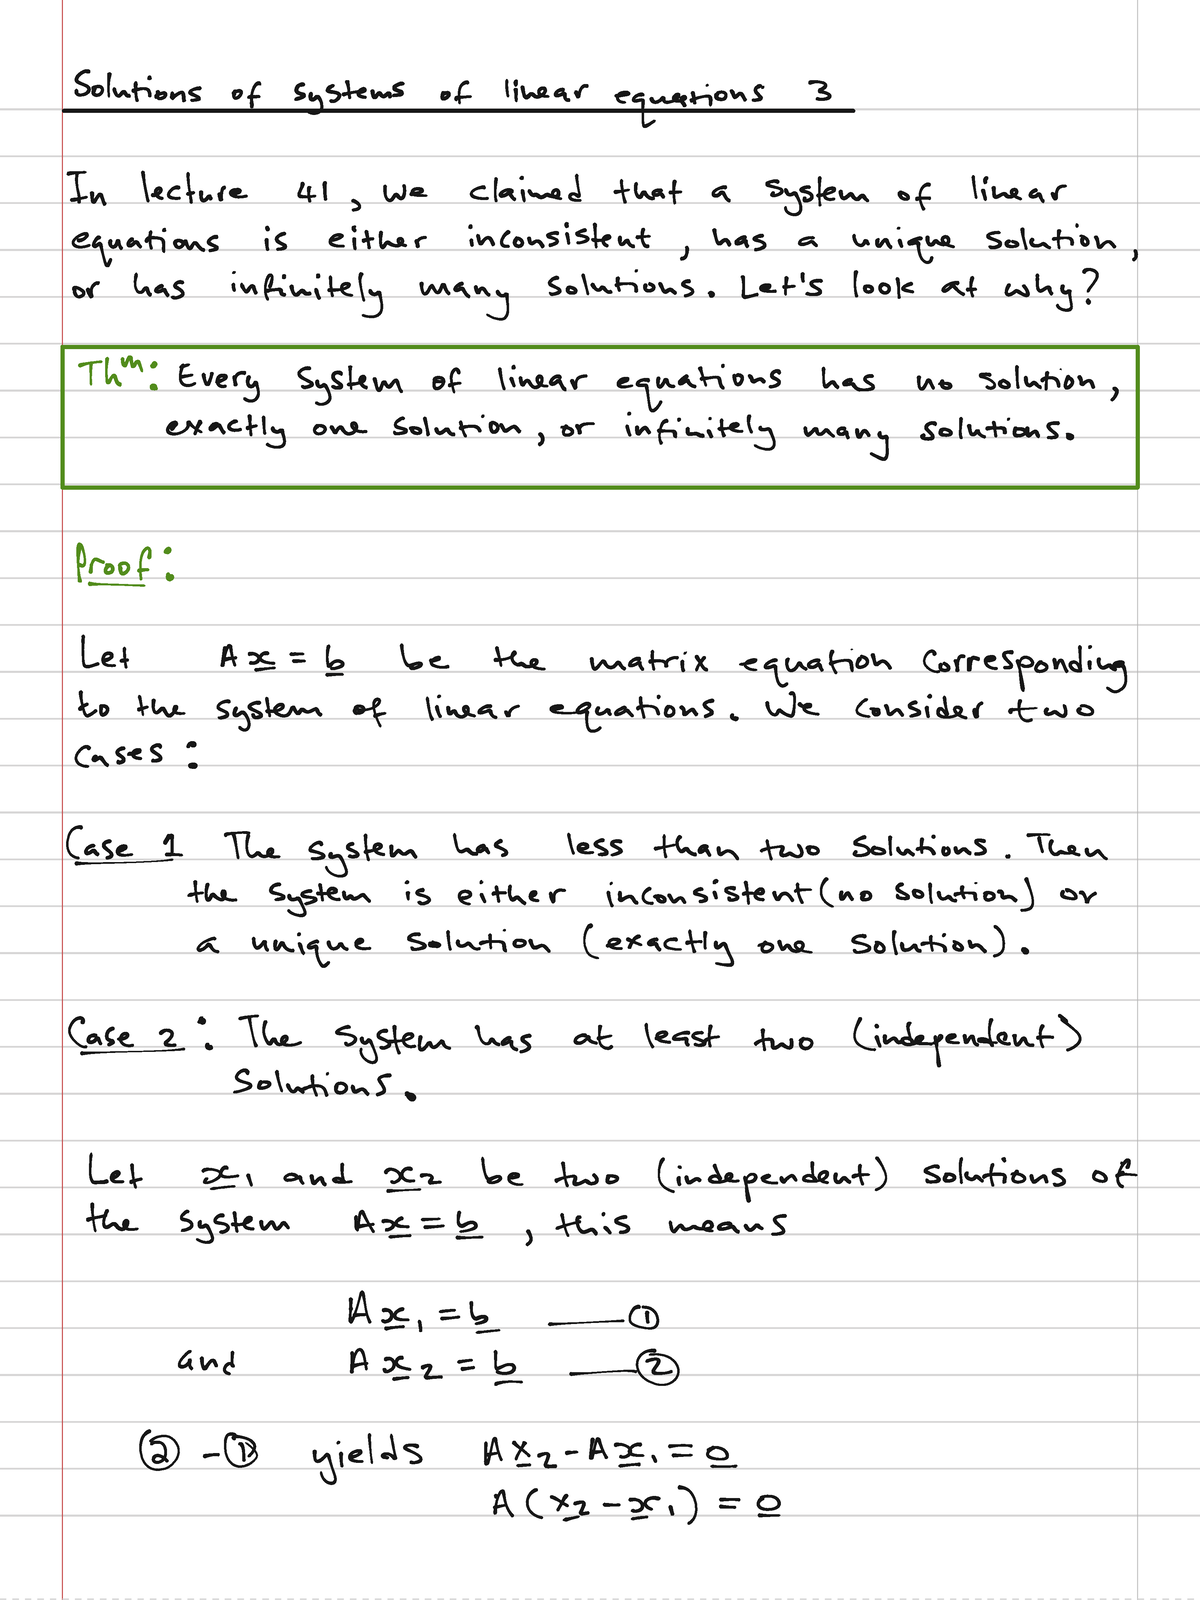 Solutions of systems of linear equations 3
In lecture 41, we claimed that a system of linear
equations is either inconsistent, has a unique solution,
or has infinitely many solutions. Let's look at why?
Thᵐ: Every system of linear equations has no solution,
exactly one solution, or infinitely many solutions.
Proof:
Let Ax = b be the matrix equation corresponding
to the system of linear equations. We consider two
cases:
Case 1 The system has less than two solutions. Then
the system is either inconsistent (no solution) or
a unique solution (exactly one solution).
Case 2: The system has at least two (independent)
solutions.
Let x₁ and x₂ be two (independent) solutions of
the system Ax = b, this means
Ax₁ = b —— ①
and Ax₂ = b —— ②
② - ① yields Ax₂ - Ax₁ = 0
A(x₂ - x₁) = 0